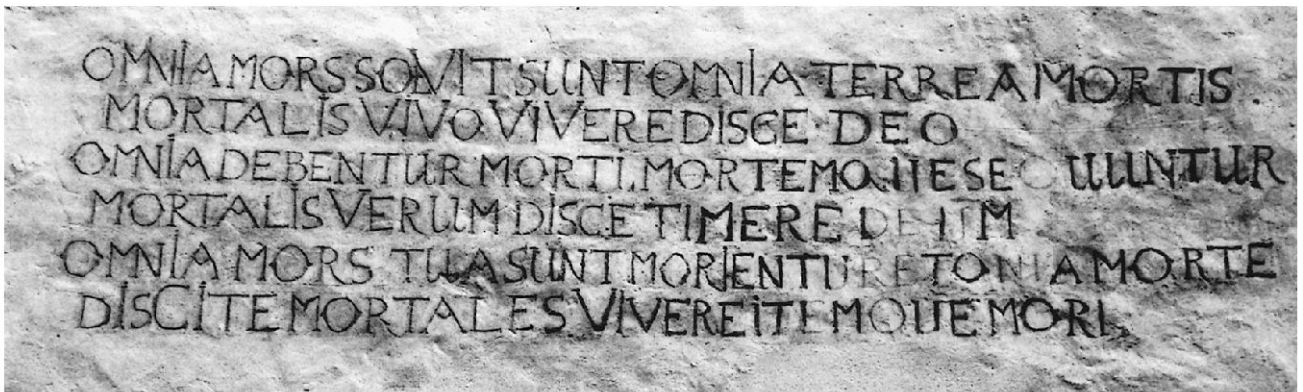 OMNIA MORS SOLVIT SUNT OMNIA TERREA MORTIS.
MORTALIS VIVO VIVERE DISCE DEO
OMNIA DEBENTUR MORTI. MORTEMQUE SEQUUNTUR
MORTALIS VERUM DISCE TIMERE DEUM
OMNIA MORS TUA SUNT MORIENTUR ET ONIA MORTE
DISCITE MORTALES VIVERE ITEMQUE MORI.